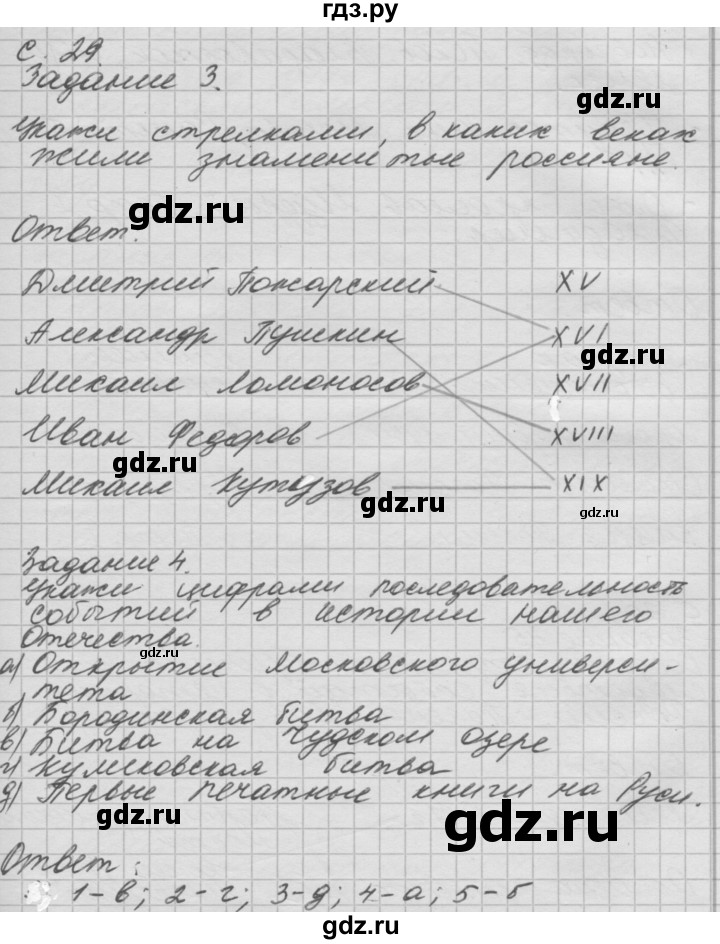 гдз.ру
с. 29.
Задание 3.
gdz.ru
Укажи стрелками, в каких веках
жили знаменитые россияне.
gdz.ru
Ответ.
Дмитрий Пожарский XV
Александр Пушкин XVI
gdz.ru
Михаил Ломоносов XVII
Иван Федоров XVIII
gdz.ru
Михаил Кутузов XIX
gdz.ru
gdz.ru
Задание 4.
Укажи цифрами последовательность
событий в истории нашего
Отечества.
gdz.ru
а) Открытие Московского универси-
тета
б) Бородинская битва
в) Битва на Чудском озере
г) Куликовская битва
д) Первые печатные книги на Руси.
gdz.ru
gdz.ru
Ответ:
1-в; 2-г; 3-д; 4-а; 5-б
gdz.ru